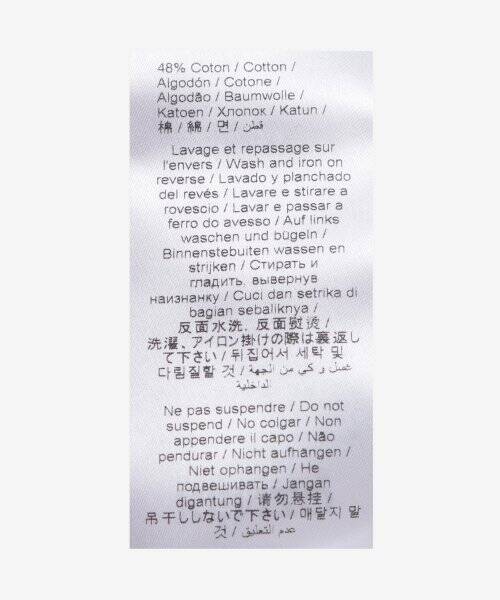 48% Coton / Cotton /
Algodón / Cotone /
Algodão / Baumwolle /
Katoen / Хлопок / Katun /
棉 / 綿 / 면 / قطن
Lavage et repassage sur
l'envers / Wash and iron on
reverse / Lavado y planchado
del revés / Lavare e stirare a
rovescio / Lavar e passar a
ferro do avesso / Auf links
waschen und bügeln /
Binnenstebuiten wassen en
strijken / Стирать и
гладить, вывернув
наизнанку / Cuci dan setrika di
bagian sebaliknya /
反面水洗, 反面熨烫 /
洗濯、アイロン掛けの際は裏返し
て下さい / 뒤집어서 세탁 및
다림질할 것 / غسل و كي من الجهة
الداخلية
Ne pas suspendre / Do not
suspend / No colgar / Non
appendere il capo / Não
pendurar / Nicht aufhangen /
Niet ophangen / Не
подвешивать / Jangan
digantung / 请勿悬挂 /
吊干ししないで下さい / 매달지 말
것 / عدم التعليق